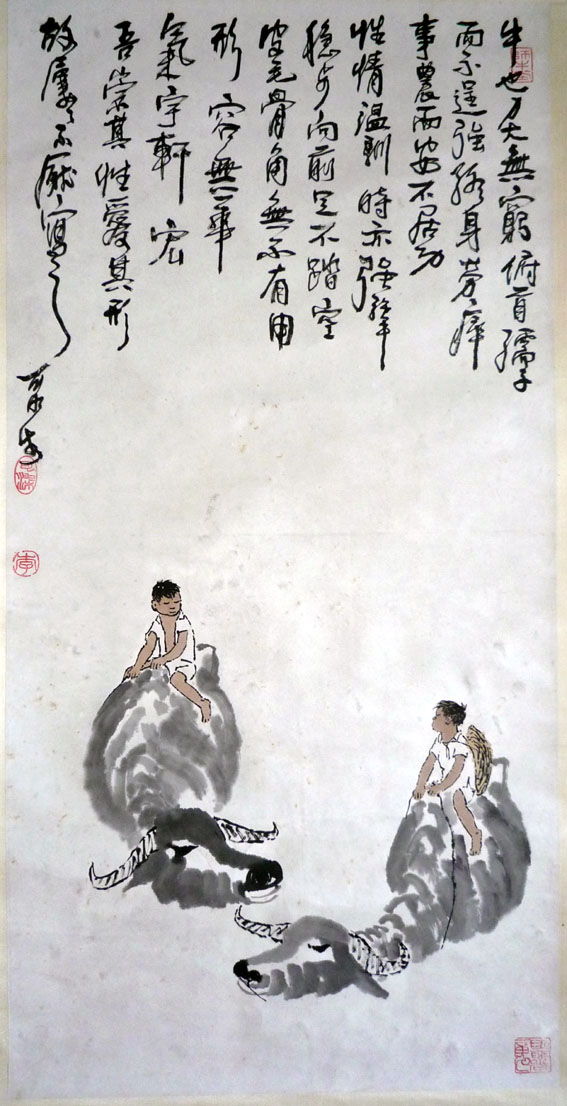 牛也力大無窮俯首孺子
而不逞強終身勞瘁
事農而安不居功
性情溫馴時亦強犟
穩步向前足不踏空
皮毛骨角無不有用
形容無華
氣宇軒宏
吾崇其性愛其形
故屢々不厭寫之
可染
李